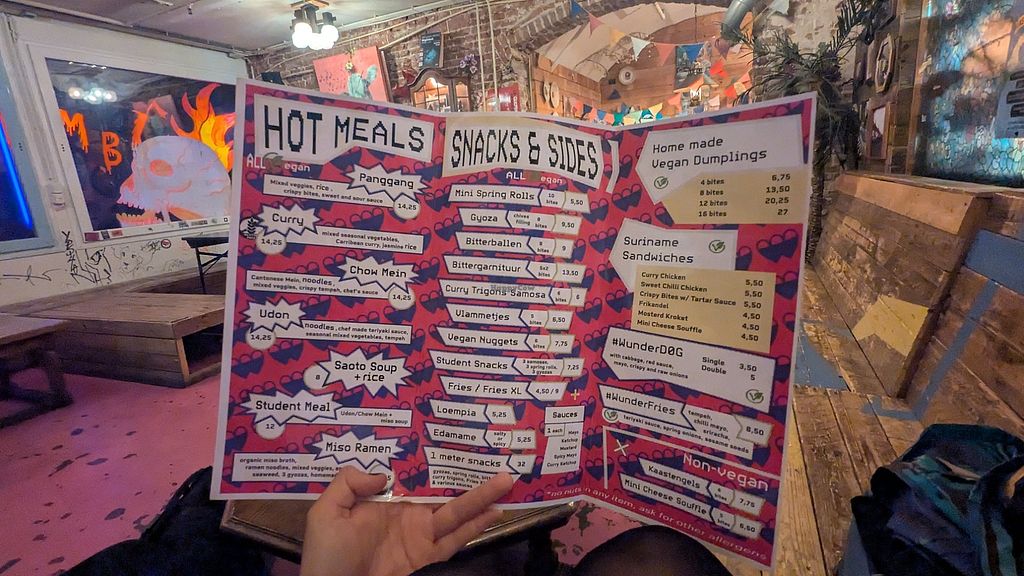 HOT MEALS
ALL vegan
Panggang
Mixed veggies, rice,
crispy bites, sweet and sour sauce
14,25
Curry
14,25
mixed seasonal vegetables,
Carribean curry, jasmine rice
Chow Mein
Cantonese Mein, noodles,
mixed veggies, crispy tempeh, chef's sauce
14,25
Udon
14,25
noodles, chef made teriyaki sauce,
seasonal mixed vegetables, tempeh
Saoto Soup
+ rice
8
Student Meal
12
Udon/Chow Mein +
miso soup
Miso Ramen
organic miso broth,
ramen noodles, mixed veggies,
seaweed, 3 gyozas,
SNACKS & SIDES
ALL vegan
Mini Spring Rolls 10 bites 5,50
Gyoza chives filling 8 bites 9,50
Bitterballen 8 bites 9
Bittergarnituur 5x2 bites 13,50
Curry Trigons Samosa bites 6
Vlammetjes 5 bites 6,50
Vegan Nuggets 6 bites 7,75
Student Snacks 3 samosas, 3 spring rolls, 3 gyozas 7,25
Fries / Fries XL 4,50 / 9
Loempia 5,25
Edamame salty or spicy 5,25
1 meter snacks 32
gyozas, spring rolls,
curry trigons, Fries
& various sauces
Sauces
1 each
Mayo
Ketchup
Mustard
Spicy Mayo
Curry Ketchup
Home made
Vegan Dumplings
4 bites 6,75
8 bites 13,50
12 bites 20,25
16 bites 27
Suriname
Sandwiches
Curry Chicken 5,50
Sweet Chilli Chicken 5,50
Crispy Bites w/ Tartar Sauce 5,50
Frikandel 4,50
Mosterd Kroket 4,50
Mini Cheese Souffle 4,50
#WunderDOG
Single 3,50
Double 5
with cabbage, red sauce,
mayo, crispy and raw onions
#WunderFries
tempeh,
chilli mayo,
sriracha,
teriyaki sauce, spring onions, sesame seeds
8,50
Non-vegan
Kaastengels 4 bites 7,75
Mini Cheese Souffle 5 bites 6,50
*no nuts in any item, ask for other allergens
HappyCow